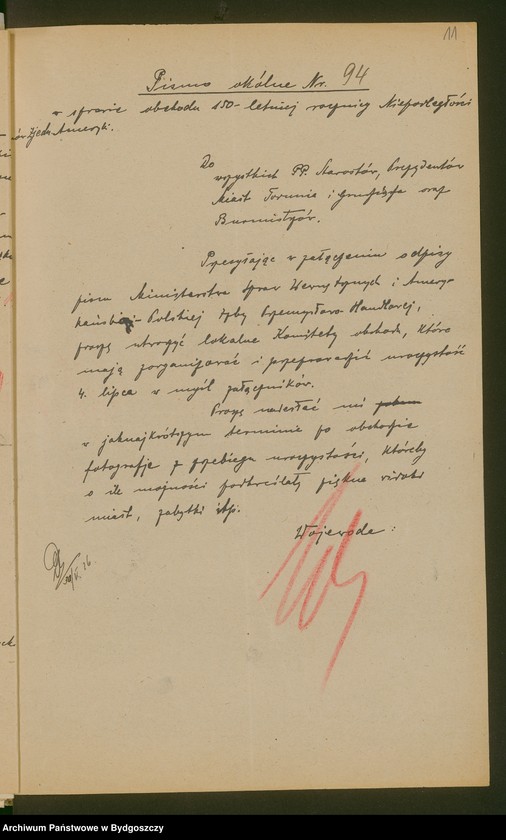 11
Pismo okólne Nr. 94
w sprawie obchodu 150-letniej rocznicy Niepodległości
Zjedn. Ameryki.
Do
wszystkich PP. Starostów, Prezydentów
Miast Torunia i Grudziądza oraz
Burmistrzów.
Przesyłając w załączeniu odpisy
pism Ministerstwa Spraw Wewnętrznych i Amery-
kańsko-Polskiej Izby Przemysłowo-Handlowej,
proszę utworzyć lokalne Komitety obchodu, które
mają zorganizować i przeprowadzić uroczystość
4. lipca w myśl załączników.
Proszę nadesłać mi
w jaknajkrótszym terminie po obchodzie
fotografje z przebiegu uroczystości, któreby
o ile możności podkreślały piękne widoki
miast, zabytki itp.
Wojewoda:
Archiwum Państwowe w Bydgoszczy